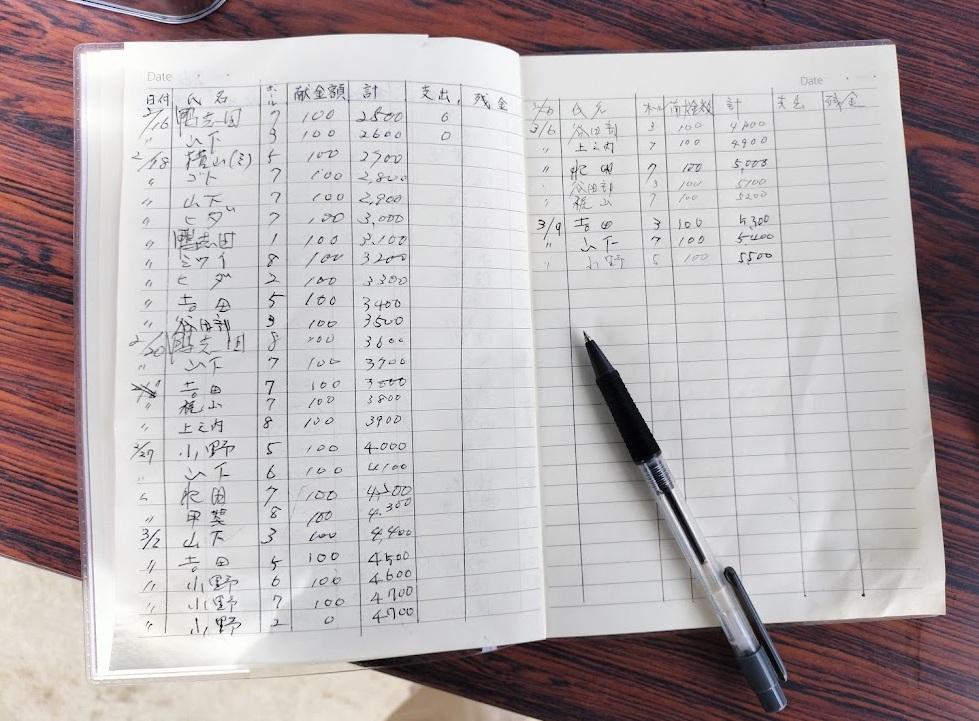 Date
日付 氏名 ホール 献金額 計 支出 残金
2/16 鴨志田 7 100 2500 0
〃 山下 3 100 2600 0
2/18 横山(ミ) 5 100 2700
〃 ゴト 7 100 2,800
〃 山下 7 100 2,900
〃 ヒダ 7 100 3,000
〃 鴨志田 1 100 3,100
〃 ミツイ 8 100 3200
〃 ヒダ 2 100 3300
〃 吉田 5 100 3400
〃 谷田部 3 100 3500
2/20 鴨志田 8 3600
〃 山下 7 100 3700
吉田 7 100
〃 梶山 7 100 3800
〃 上之内 8 100 3900
2/27 小野 5 100 4.000
〃 山下 6 100 4100
〃 肥田 7 100 4,200
〃 甲斐 8 100 4.300
3/2 山下 3 100 4,400
〃 吉田 5 100 4500
〃 小野 6 100 4600
〃 小野 7 100 4700
〃 小野 2 0 4700
Date
氏名 ホール 計 支出 残金
3/6 谷田部 3 100 4800
〃 上之内 7 100 4900
〃 肥田 7 100 5,000
〃 谷田部 3 100 5100
〃 梶山 7 100 5200
3/9 吉田 3 100 5,300
〃 山下 7 100 5400
〃 小野 5 100 5500